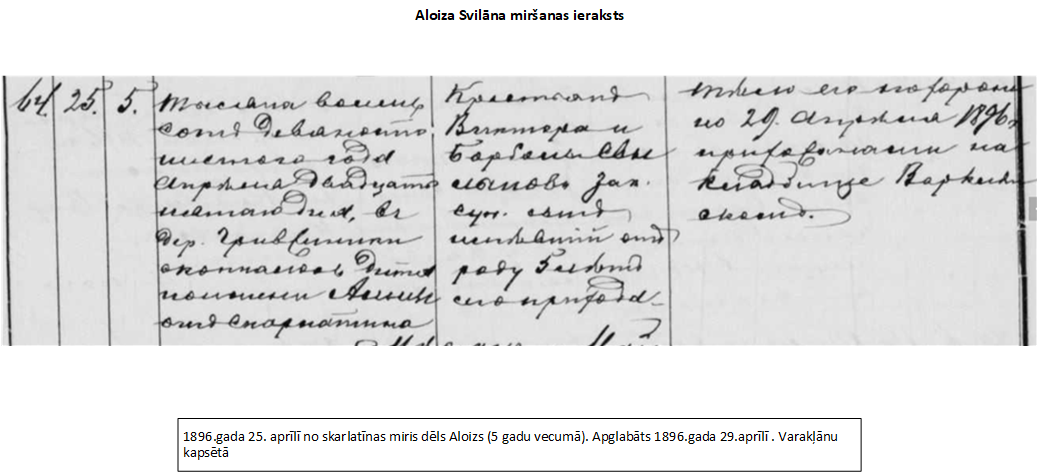 Aloiza Svilāna miršanas ieraksts
64. 25. 5.
Тысяча восемь
сотъ девяносто
шестого года
Апрѣля двадцать
пятаго дня, въ
дер.
скончалось дитя
по имени
отъ скарлатина
Крестьянъ
Виктора и
Барбары Сви
лановъ зак.
суп. сынъ
имѣвшій отъ
роду 5 лѣтъ
сего прихода
тѣло его похороне
но 29. Апрѣля 1896 г.
на
кладбище Варклян
скомъ.
1896.gada 25. aprīlī no skarlatīnas miris dēls Aloizs (5 gadu vecumā). Apglabāts 1896.gada 29.aprīlī . Varakļānu
kapsētā